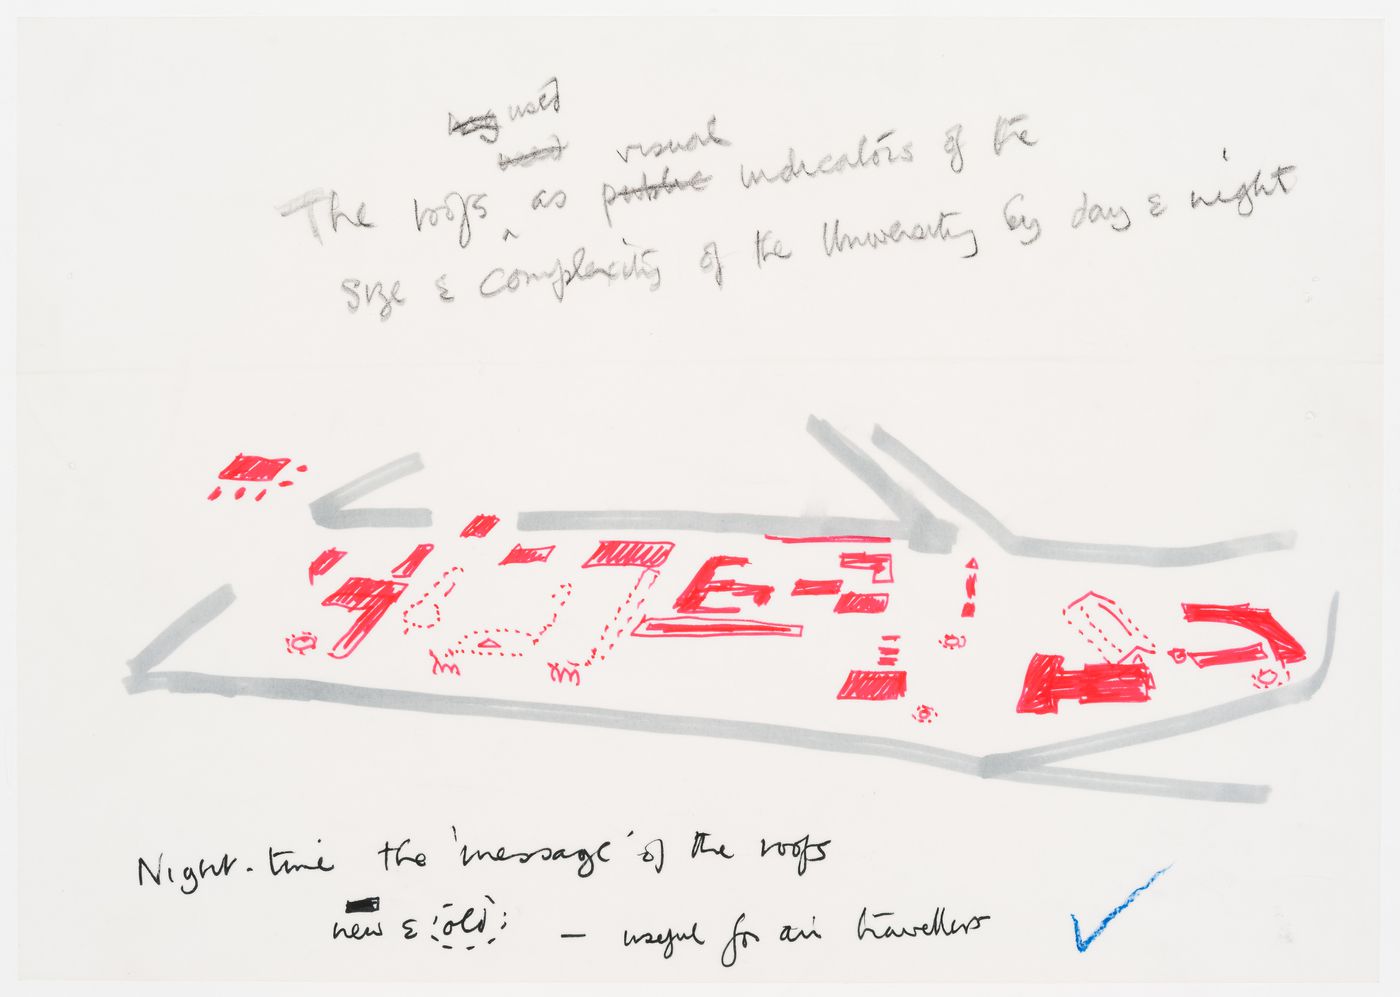 used
visual
The roofs as public indicators of the
size & complexity of the University by day & night
Night-time the 'message' of the roofs
new & old — useful for air travellers